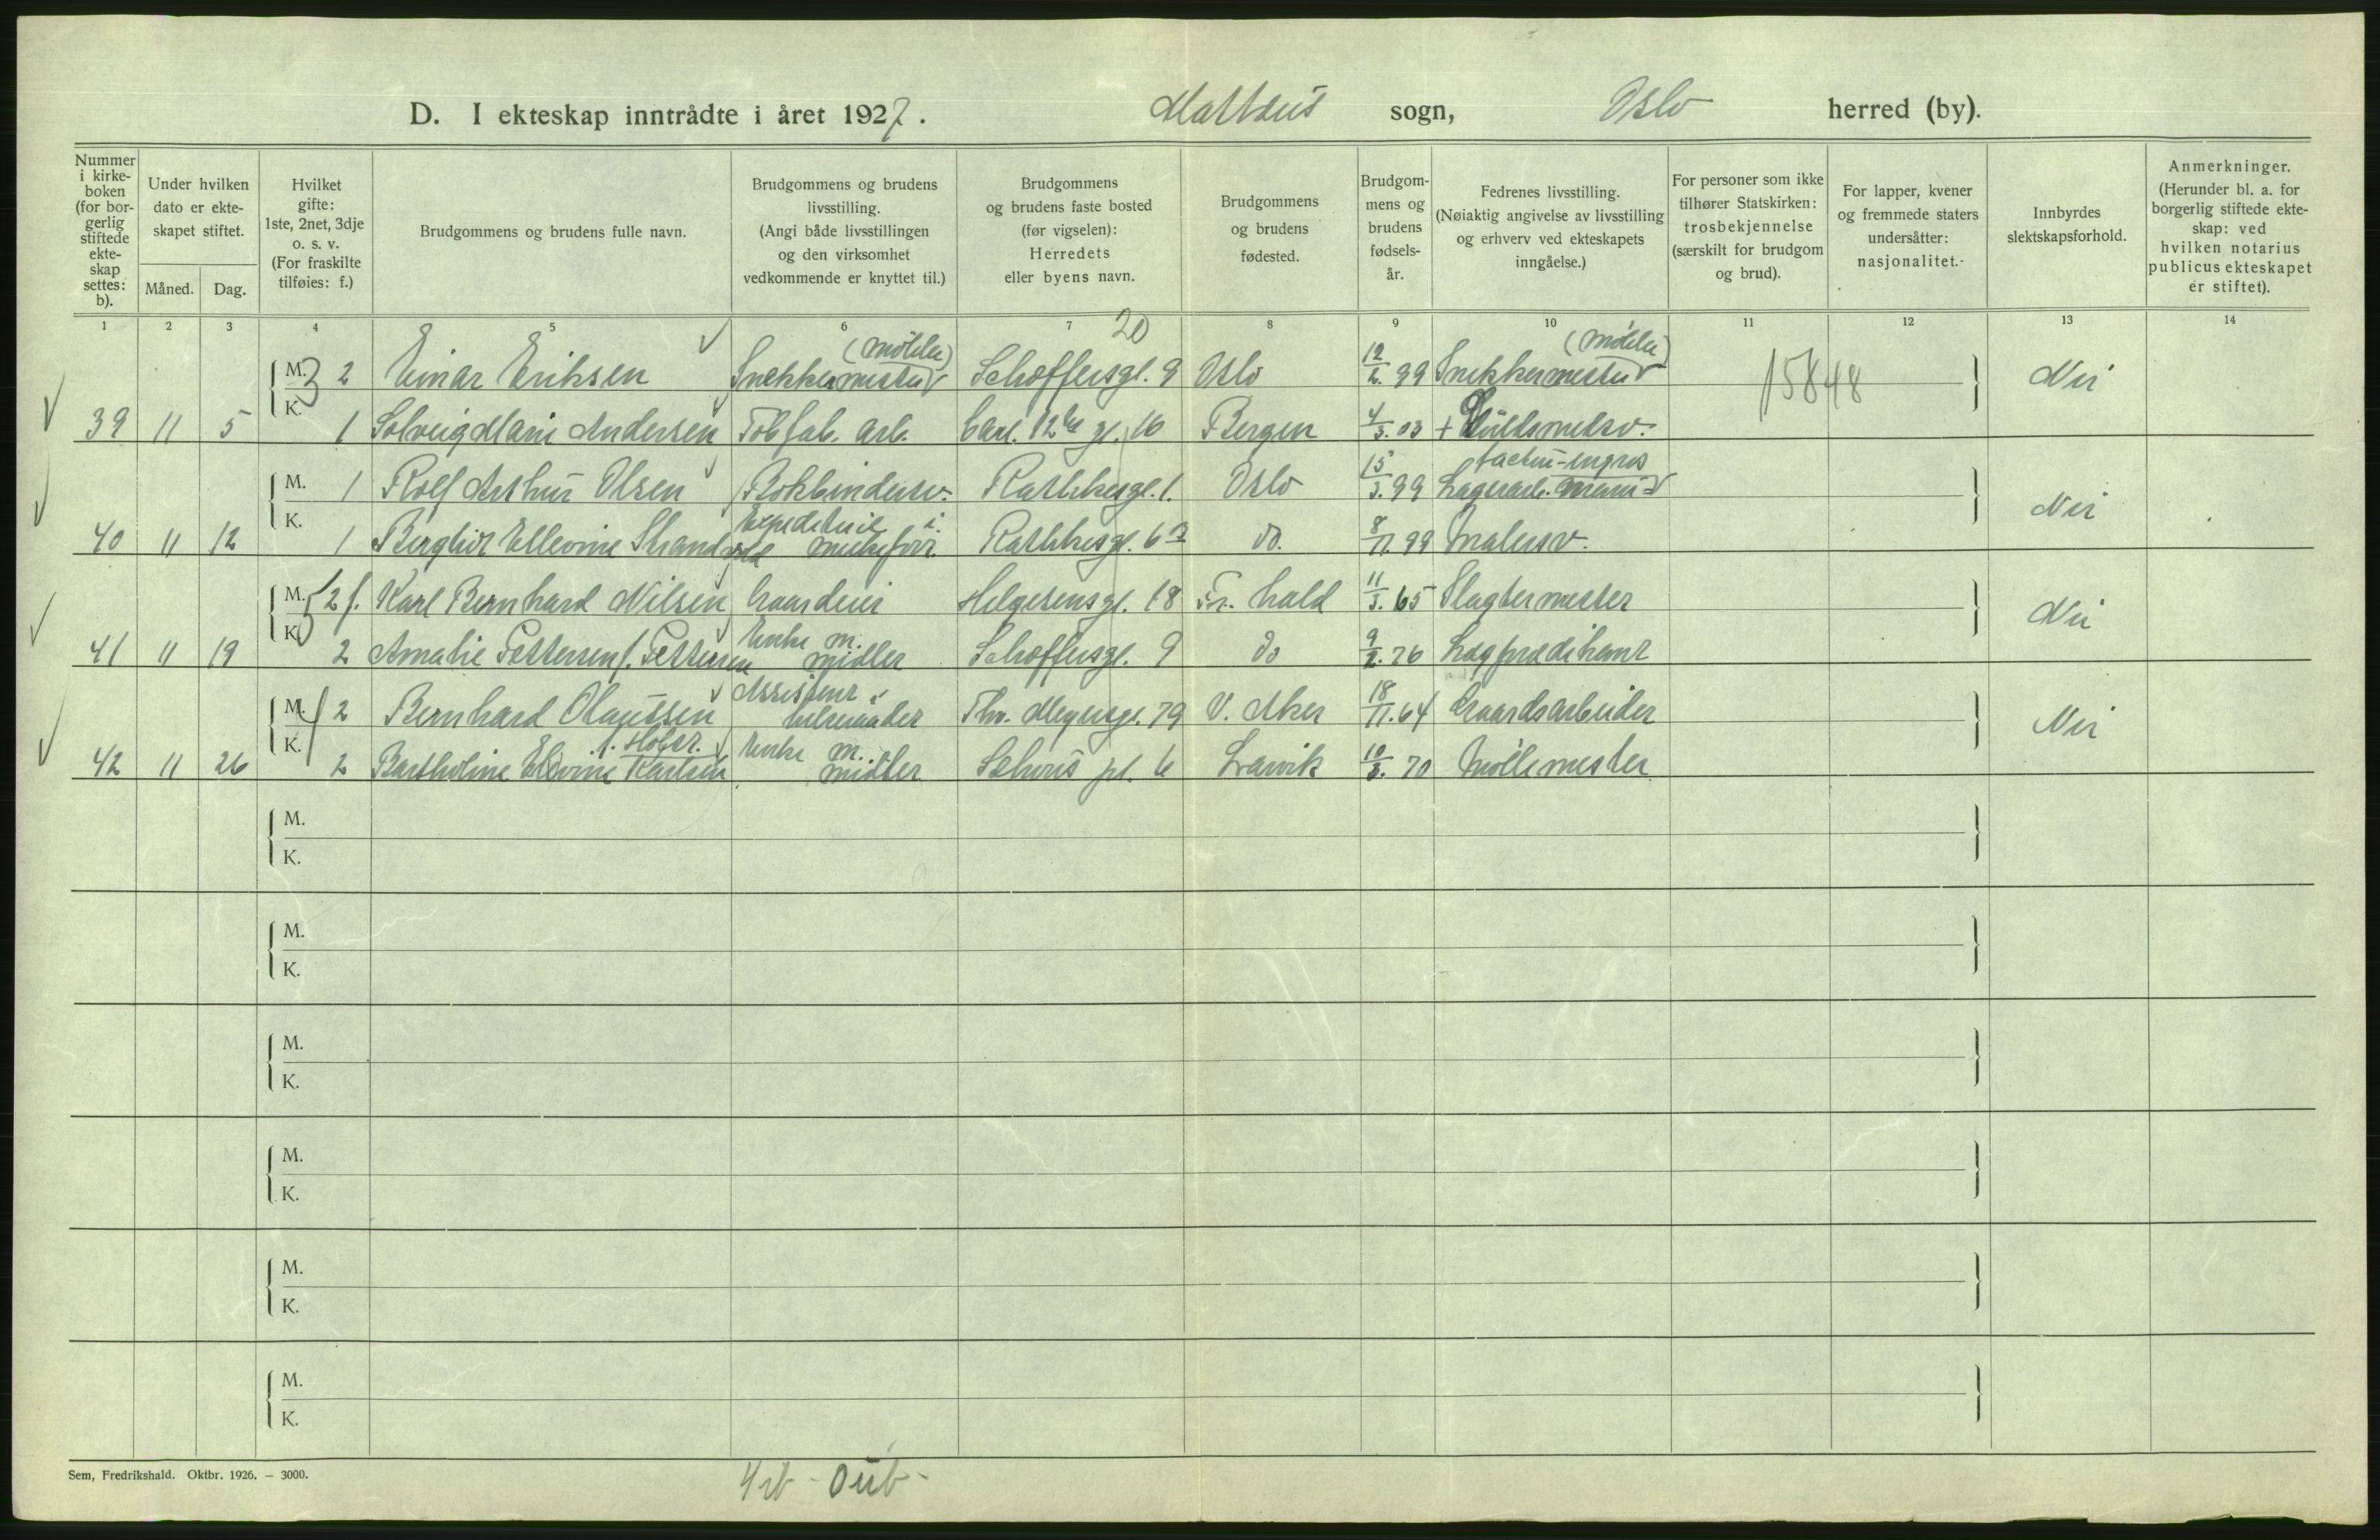 D. I ekteskap inntrådte i året 1927. Matteus sogn, Oslo herred (by).
Nummer i kirkeboken (for borgerlig stiftede ekteskap settes: b).
Under hvilken dato er ekteskapet stiftet.
Måned. Dag.
Hvilket gifte: 1ste, 2net, 3dje o. s. v. (For fraskilte tilføies: f.)
Brudgommens og brudens fulle navn.
Brudgommens og brudens livsstilling. (Angi både livsstillingen og den virksomhet vedkommende er knyttet til.)
Brudgommens og brudens faste bosted (før vigselen): Herredets eller byens navn.
Brudgommens og brudens fødested.
Brudgommens og brudens fødselsår.
Fedrenes livsstilling. (Nøiaktig angivelse av livsstilling og erhverv ved ekteskapets inngåelse.)
For personer som ikke tilhører Statskirken: trosbekjennelse (særskilt for brudgom og brud).
For lapper, kvener og fremmede staters undersåtter: nasjonalitet.
Innbyrdes slektskapsforhold.
Anmerkninger. (Herunder bl. a. for borgerlig stiftede ekteskap: ved hvilken notarius publicus ekteskapet er stiftet).
1 2 3 4 5 6 7 8 9 10 11 12 13 14
20
(møbler) (møbler)
M. 3 2 Einar Eriksen Snekkermester Schoffersgt. 9 Oslo 12/2. 99 Snekkermester 15848 Nei
39 11 5 K. 1 Solveig Marie Andersen Tobfab. arb. Carl 12tes gt. 16 Bergen 4/3. 03 + Guldsmedsv.
M. 1 Rolf Arthur Olsen Bokbindersv. Rathkesgt. 1. Oslo 15/3. 99 Lagerarb. Nei
Expeditrice i
40 11 12 K. 1 Bergliot Ellevine Strand Rathkesgt. 6 do. 8/11. 99 Malersv.
M. 2 f. Karl Bernhard Nilsen Gaardeier Helgesensgt. 18 Fr. hald 11/3. 65 Slagtermester Nei
Enke m.
41 11 19 K. 2 Amalie Pettersen f. Pettersen midler Schoffersgt. 9 do 9/2. 76 Lægprædikant
Assistent i
M. 2 Bernhard Olaussen helseraadet Thv. Meyersgt. 79 V. Aker 18/11. 64 Gaardsarbeider Nei
Enke m.
42 11 26 K. 2 Bartholine Elevine Karlsen midler Schous pl. 6 Larvik 10/3. 70 Møllemester
M.
K.
M.
K.
M.
K.
M.
K.
M.
K.
M.
K.
Sem, Fredrikshald. Oktbr. 1926. – 3000.